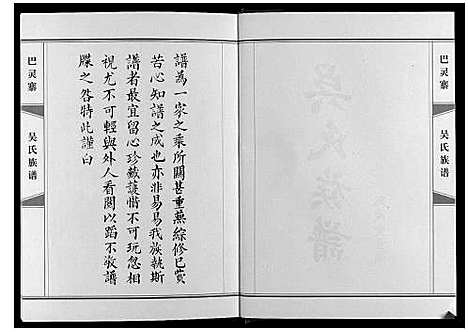 巴灵寨
吴氏族谱
吳氏族譜
譜為一家之乘所關甚重蕪綜修已賞
苦心知譜之成也亦非易易我族執斯
譜者最宜留心珍藏護惜不可玩忽相
視尤不可輕與外人看閱以蹈不敬譜
牒之咎特此謹白
巴灵寨
吴氏族谱